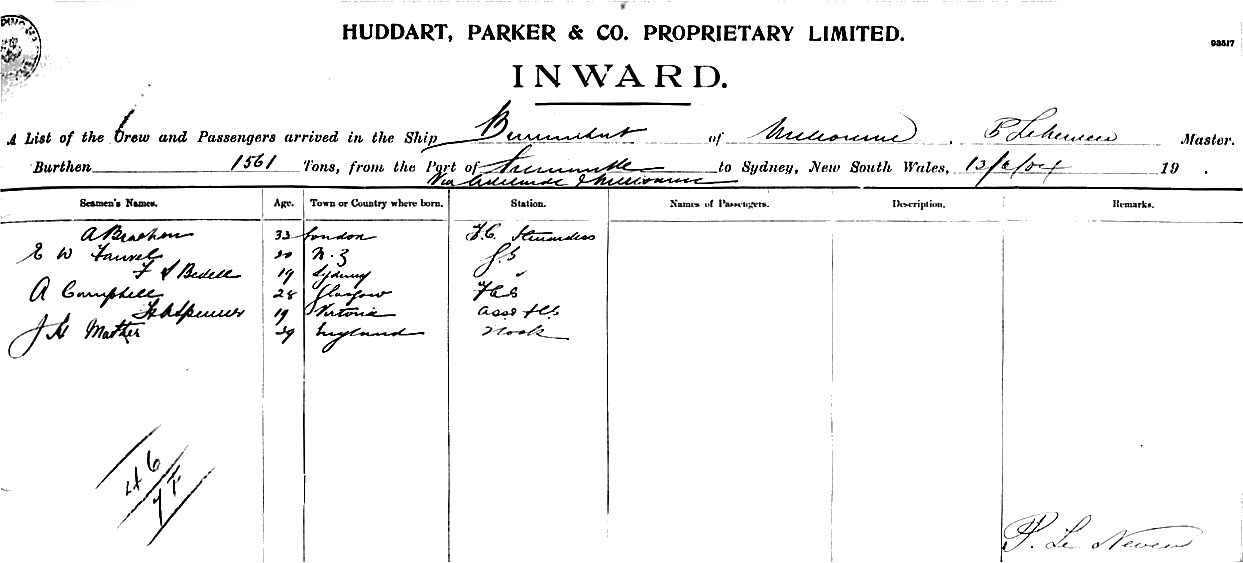 HUDDART, PARKER & CO. PROPRIETARY LIMITED.
93517
INWARD.
A List of the Crew and Passengers arrived in the Ship Burrumbeet of Melbourne. P Le Neveu Master.
Burthen 1561 Tons, from the Port of Fremantle to Sydney, New South Wales, 13/6/04 19 .
Via Adelaide & Melbourne
Seamen's Names. Age. Town or Country where born. Station. Names of Passengers. Description. Remarks.
A 33 London F.C. Steward
E W 20 N.Z
F S Bedell 19 Sydney
A Campbell 28 Glasgow FCS
Spencer 19 Victoria
J H Mather 29 England
46
7F
P. Le Neveu